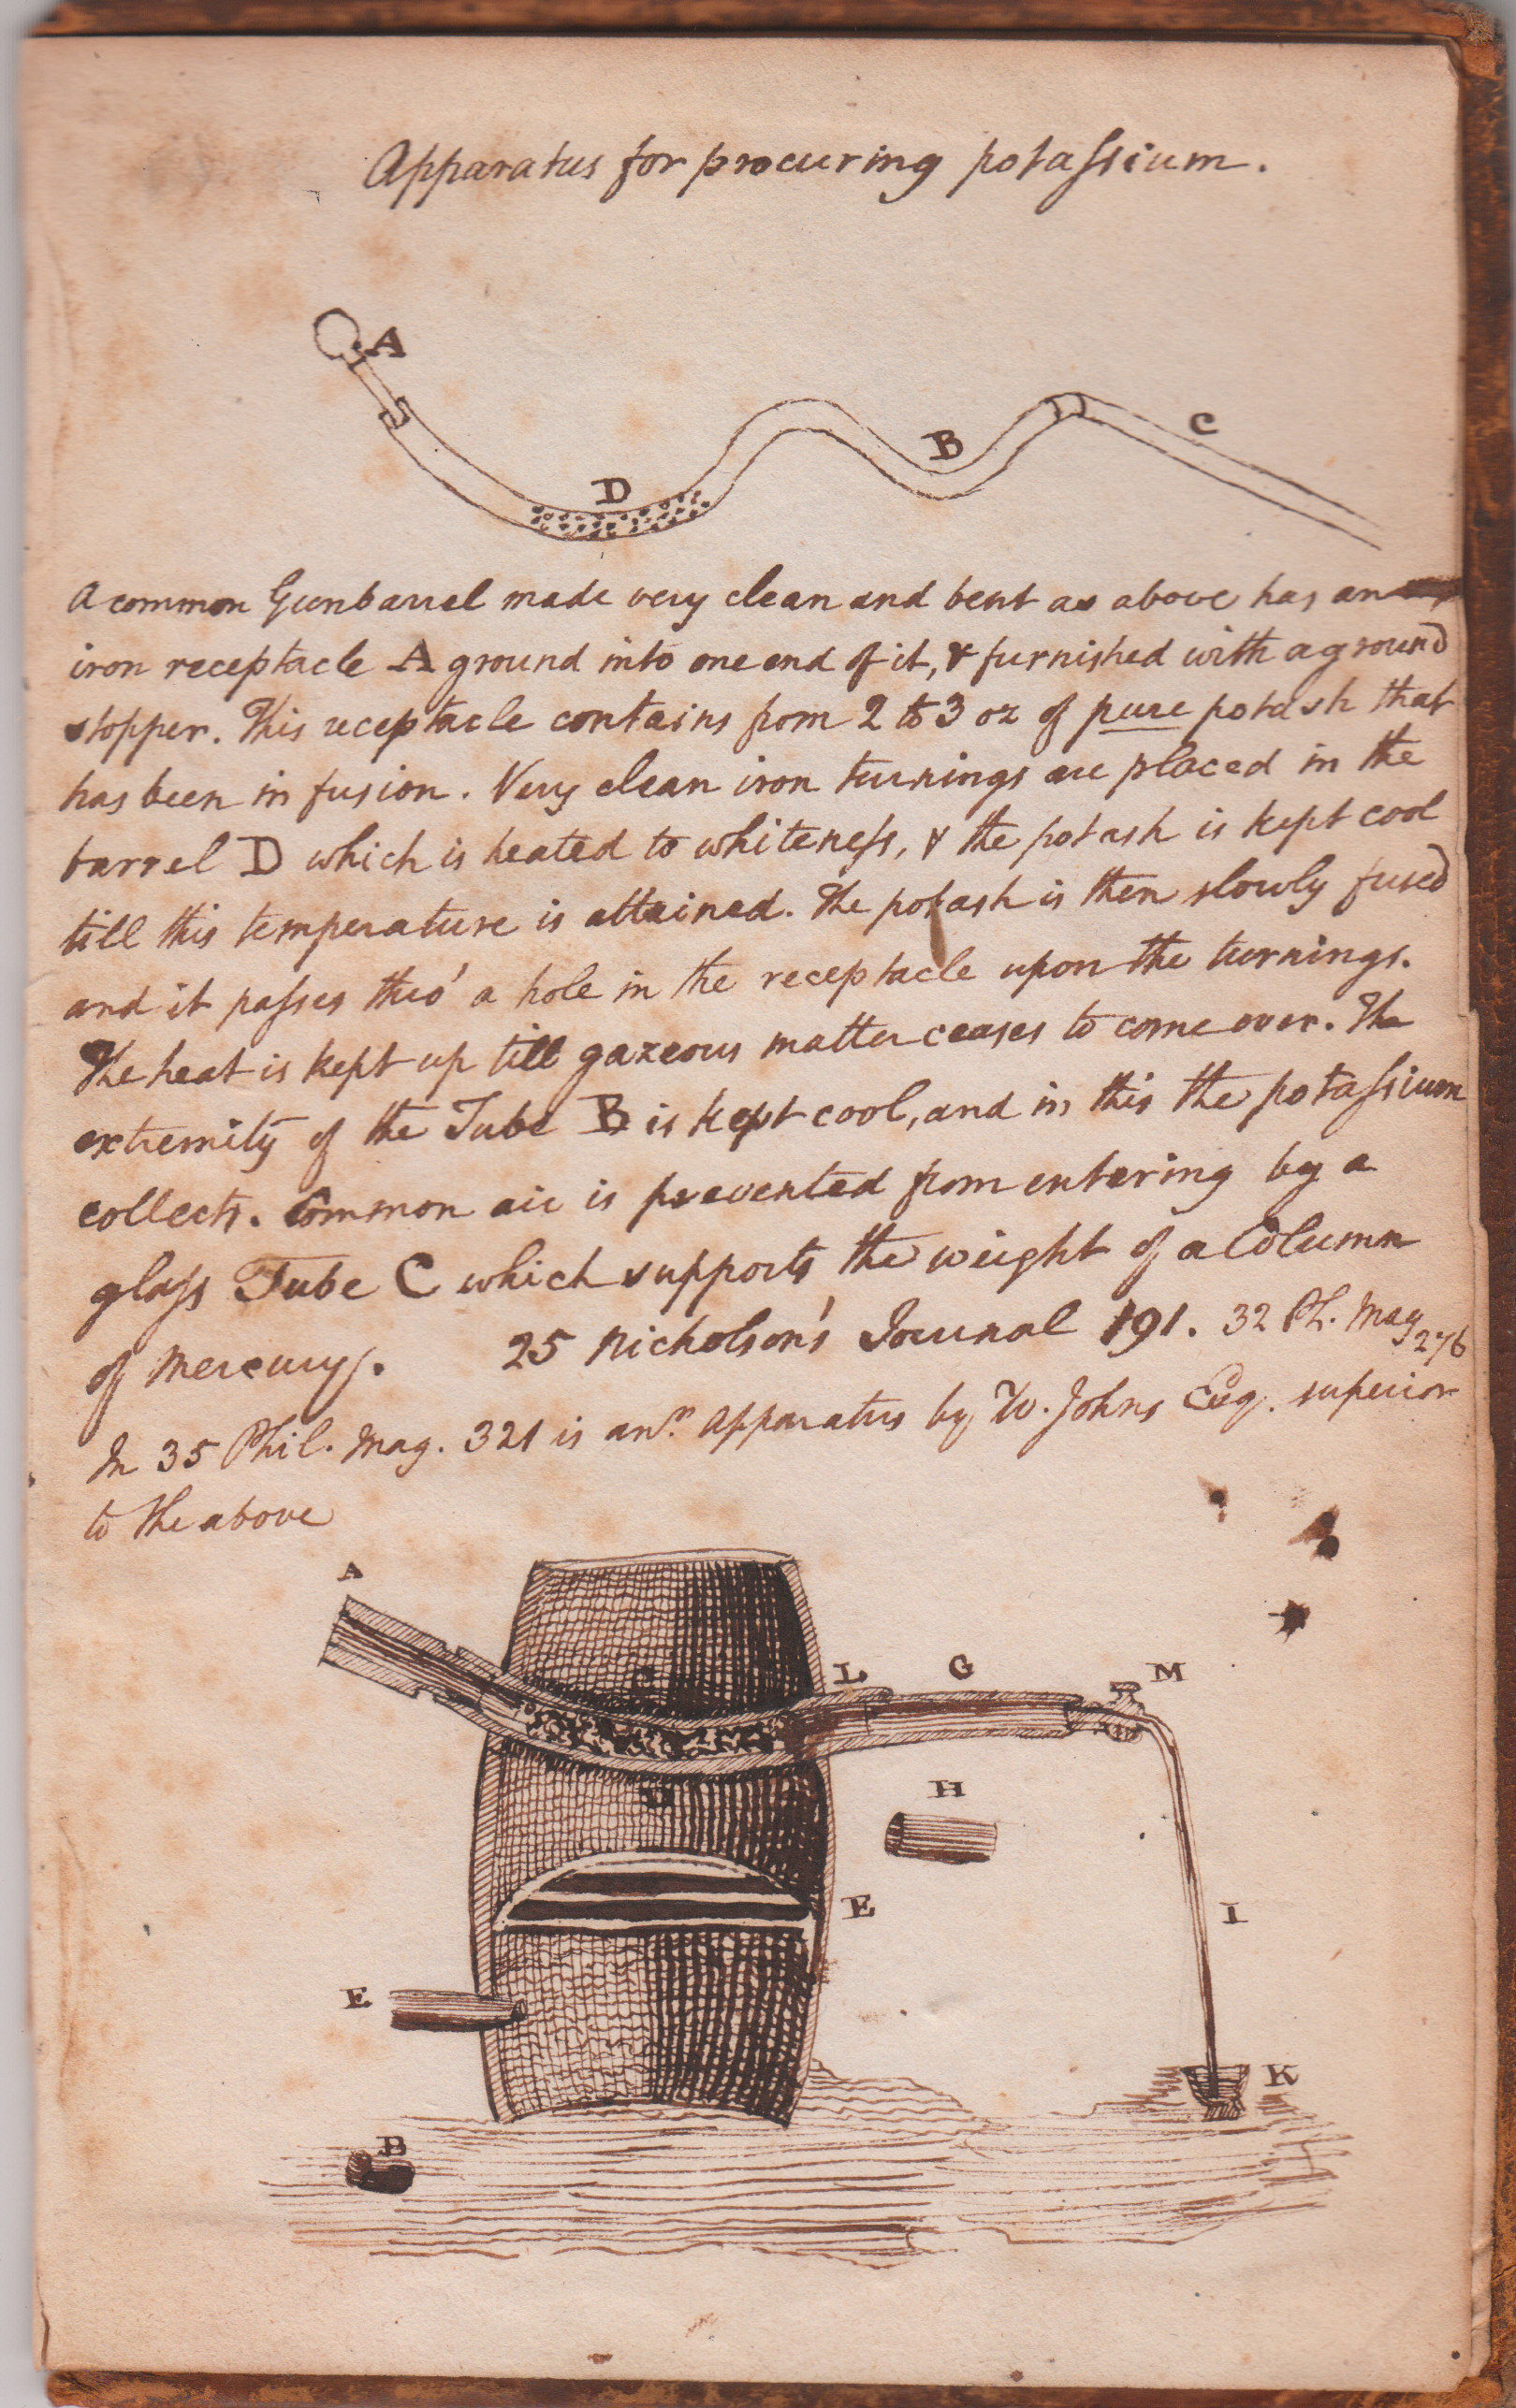 Apparatus for procuring potaſsium.
A
B
C
D
A common Gunbarrel made very clean and bent as above has an
iron receptacle A ground into one end of it, & furnished with a ground
stopper. This receptacle contains from 2 to 3 oz of pure potash that
has been in fusion. Very clean iron turnings are placed in the
barrel D which is heated to whiteneſs, & the potash is kept cool
till this temperature is attained. The potash is then slowly fused
and it paſses thro' a hole in the receptacle upon the turnings.
The heat is kept up till gazeous matter ceases to come over. The
extremity of the Tube B is kept cool, and in this the potaſsium
collects. Common air is prevented from entering by a
glaſs Tube C which supports the weight of a Column
of Mercury. 25 Nicholson's Journal 191. 32 Ph. Mag 276
In 35 Phil. Mag. 321 is anr. apparatus by W. Johns Esq. superior
to the above
A
L G M
H
E I
E
K
B